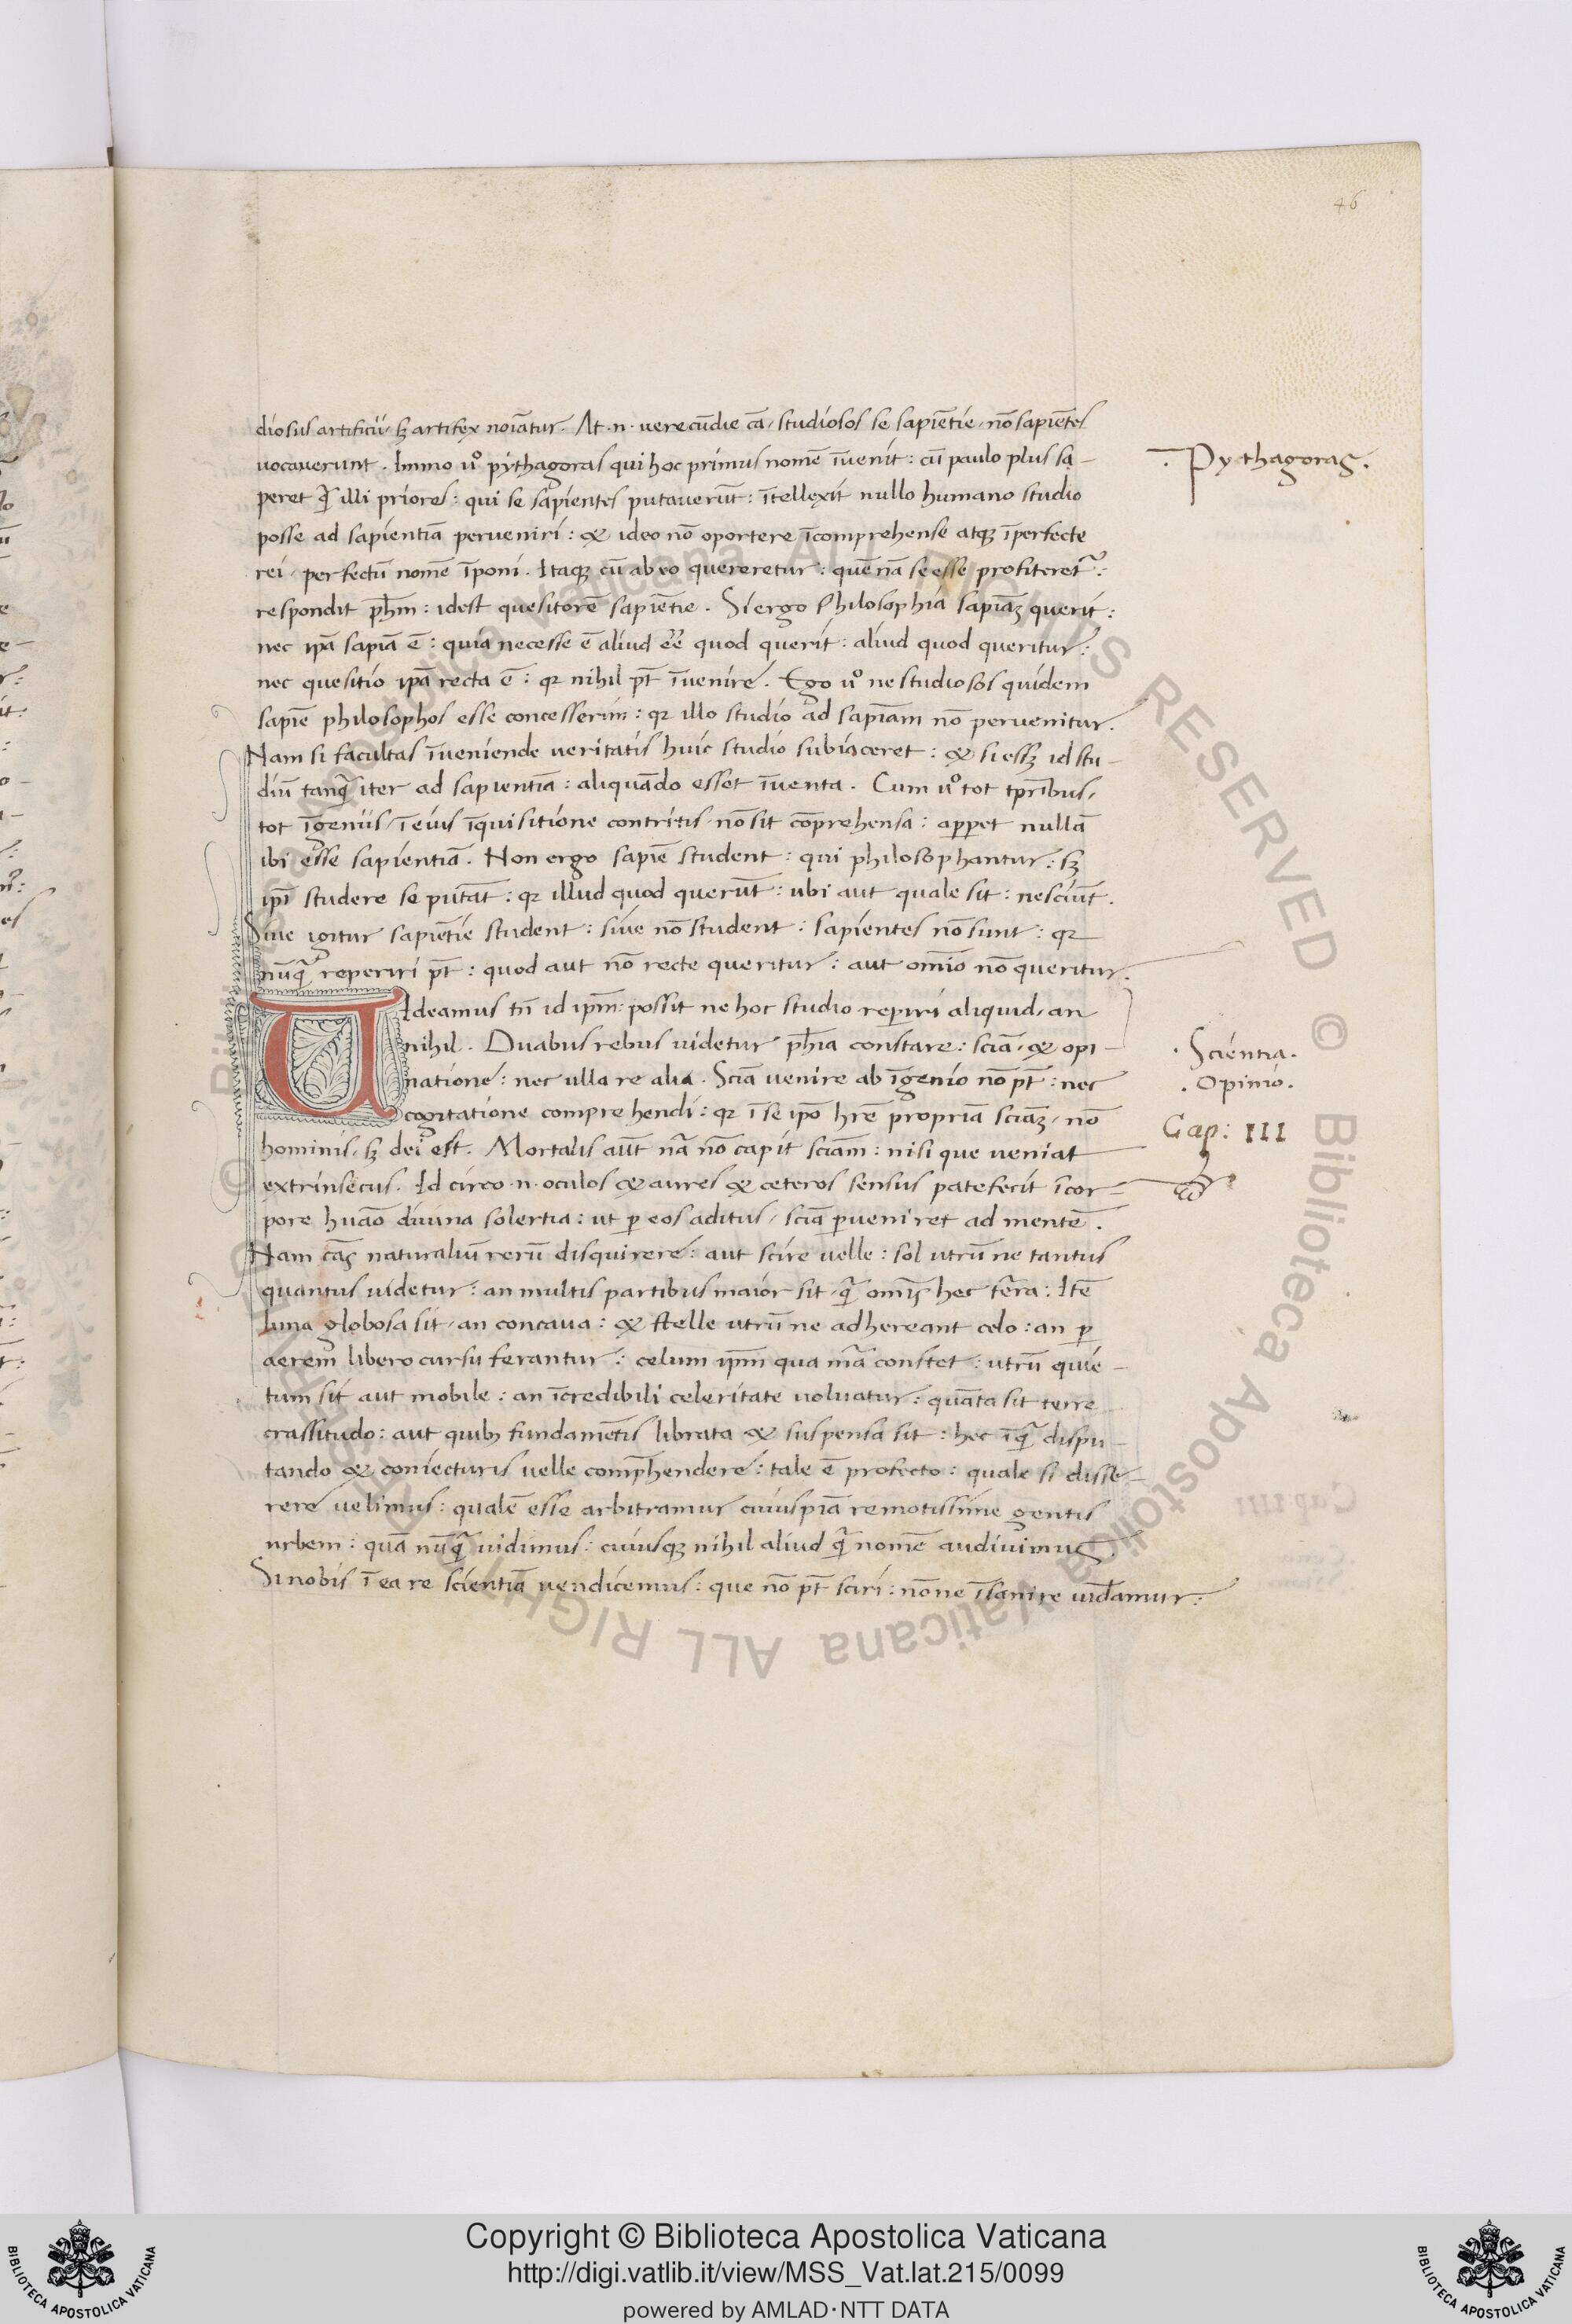 46
diosus artificii, sꝫ artifex noīatur. At .n. verecūdie cā, studiosos se sapiētie, nō sapiētes
uocaverunt. Immo uº pythagoras qui hoc primus nomē īuenit: cū paulo plus sa-
peret q̄ illi priores: qui se sapientes putaverūt: ītellexit nullo humano studio
posse ad sapientiā perveniri: & ideo nō oportere īcomprehense atqꝫ īperfecte
rei, perfectū nomē īponi. Itaqꝫ cū ab eo quereretur: quē nā se esse profiteret̄:
respondit ph̄m: idest quesitorē sapiētie. Si ergo Philosophia sapiāꝫ querit:
nec ip̄a sapiā ē: quia necesse ē aliud eē quod querit: aliud quod queritur:
nec quesitio ip̄a recta ē: qꝛ nihil pt̄ īuenire. Ego uº ne studiosos quidem
sapiē philosophos esse concesserim: qꝛ illo studio ad sapīam nō pervenitur.
Nam si facultas īueniende veritatis huic studio subiaceret: & si essꝫ id stu-
diū tanq̄ iter ad sapientiā: aliquādo esset īuenta. Cum uº tot tp̄ribus,
tot īgeniis, ī eius īquisitione contritis, nō sit cōprehensa: apꝑet nullā
ibi esse sapientiā. Non ergo sapiē student: qui philosophantur: sꝫ
ip̄i studere se putāt: qꝛ illud quod querūt: ubi aut quale sit: nesciūt.
Sive igitur sapiētie student: sive nō student: sapientes nō sunt: qꝛ
nūq̄ reperiri pt̄: quod aut nō recte queritur: aut om̄io nō queritur.
UIdeamus tn̄ id ip̄m: possit ne hoc studio reꝑiri aliquid, an
nihil. Duabus rebus uidetur ph̄ia constare: sciā, & opi-
natione: nec ulla re alia. Sciā venire ab īgenio nō pt̄: nec
cogitatione comprehendi: qꝛ ī se ip̄o hr̄e propriā sciāꝫ, nō
hominis, sꝫ dei est. Mortalis aūt nā nō capit sciam̄: nisi que veniat
extrinsecus. Id circo .n. oculos & aures & ceteros sensus patefecit ī cor-
pore huāo divina solertia: ut ꝑ eos aditus, sciā ꝑveniret ad mentē.
Nam cās naturaliū rerū disquirere: aut scire velle: sol utrū ne tantus
quantus uidetur: an multis partibus maior sit, q̄ omīs hec tr̄a: Itē
luna globosa sit, an concava: & stelle utrū ne adhereant celo: an ꝑ
aerem libero cursu ferantur: celum ip̄m qua mā constet: utrū quie-
tum sit aut mobile: an īcredibili celeritate voluatur: quāta sit terre
crassitudo: aut quibꝫ fundamētis librata & suspensa sit: hec īq̄ dispu-
tando & coniecturis velle comp̄hendere: tale ē profecto: quale si disse-
rere velimus: qualē esse arbitramur cuiuspiā remotissime gentis
urbem: quā nūq̄ uidimus: cuiusqꝫ nihil aliud q̄ nomē audivimus.
Si nobis ī ea re scientiā vendicemus: que nō pt̄ sciri: nōne īsanire uid̄amur:
. Pythagoras.
. Scientia.
. Opinio.
Cap: III
Copyright © Biblioteca Apostolica Vaticana
http://digi.vatlib.it/view/MSS_Vat.lat.215/0099
powered by AMLAD·NTT DATA
BIBLIOTECA APOSTOLICA VATICANA
BIBLIOTECA APOSTOLICA VATICANA